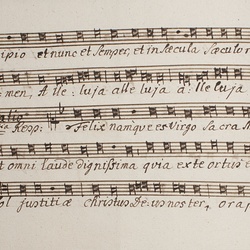 cipio et nunc et Semper, et in Sæcula Sæculor
men, Alle: luja alle luja a: lle luja
Resp: Felix namque es Virgo Sacra
et omni laude dignissima quia ex te ortus e
ol justitiæ christus De: us noster, ora